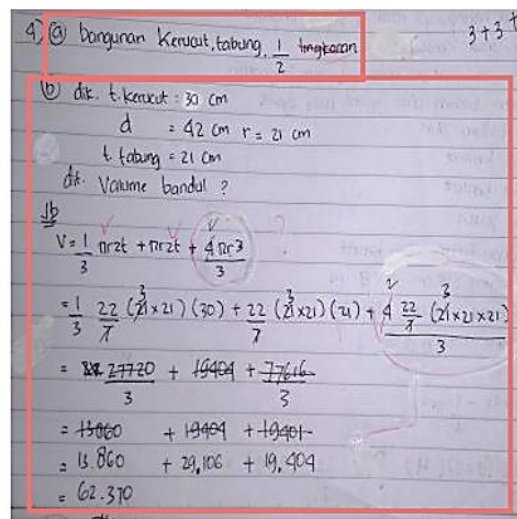 4) ⓐ bangunan Kerucut, tabung, 1/2 lingkaran
3+3+
ⓑ dik. t. kerucut = 30 cm
d = 42 cm r = 21 cm
t. tabung = 21 cm
dit. Volume bandul ?
Jb
V = 1/3 πr2t + πr2t + 4πr3/3
= 1/3 22/7 (21×21) (30) + 22/7 (21×21) (21) + 4 22/7 (21×21×21)/3
= 27720/3 + 19404 + 77616/3
= 13860 + 19404 + 19401
= 13.860 + 29,106 + 19,404
= 62.370